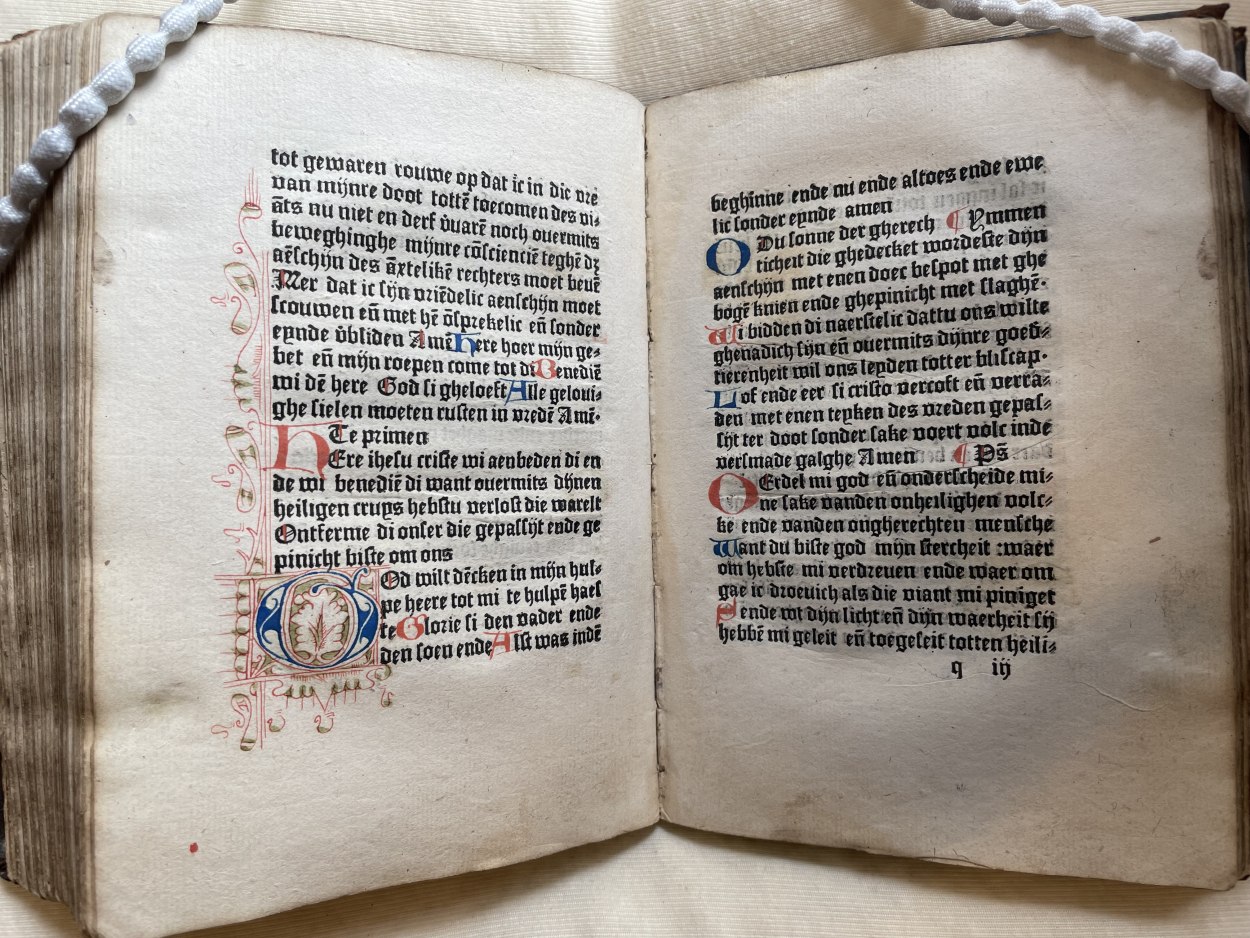 tot gewaren rouwe op dat ic in die vre
van mijnre doot tottē toecomen des vi⸗
āts nu niet en derf v̄uarē noch ouermits
beweghinghe mijnre cōsciencië teghē dꝫ
aēschijn des āxtelikē rechters moet beuē
Mer dat ic sijn vriēdelic aenschijn moet
scouwen eñ met hē ōsprekelic eñ sonder
eynde v̄bliden Amē Here hoer mijn ge⸗
bet eñ mijn roepen come tot di Benediē
wi dē here God si gheloeft Alle geloui⸗
ghe sielen moeten rusten in vredē Amē·
Te primen
HEre ihesu criste wi aenbeden di en
de wi benediē di want ouermits dijnen
heiligen cruys hebstu verlost die warelt
Ontferme di onser die gepassijt ende ge
pinicht biste om ons
GOd wilt dēcken in mijn hul⸗
pe heere tot mi te hulpē hael
te Glorie si den vader ende
den soen ende Alst was indē
beghinne ende nu ende altoes ende ewe
lic sonder eynde amen
Ymmen
O Du sonne der gherech
ticheit die ghedecket wordeste dijn
aenschijn met enen doec bespot met ghe
bogē knien ende ghepinicht met slaghē·
Wi bidden di naerstelic dattu ons wilte
ghenadich sijn eñ ouermits dijnre goed⸗
tierenheit wil ons leyden totter bliscap·
Lof ende eer si cristo vercoft eñ verra⸗
den met enen teyken des vreden gepas⸗
sijt ter doot sonder sake voert volc inde
versmade galghe Amen Ps̄
OErdel mi god eñ onderscheide mi⸗
ne sake vanden onheilighen volc⸗
ke ende vanden ongherechten mensche
Want du biste god mijn stercheit :waer
om hebste mi verdreuen ende waer om
gae ic droeuich als die viant mi piniget
Sende wt dijn licht eñ dijn waerheit sij
hebbē mi geleit eñ toegeseit totten heili⸗
q iij